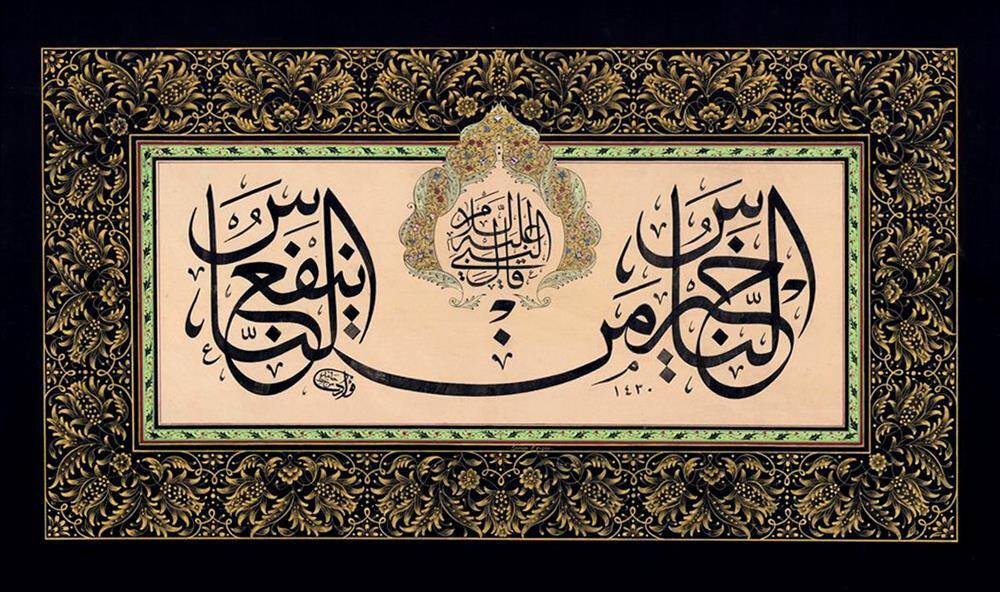 قال النبي عليه السلام
خير الناس من ينفع الناس
١٤٣٠